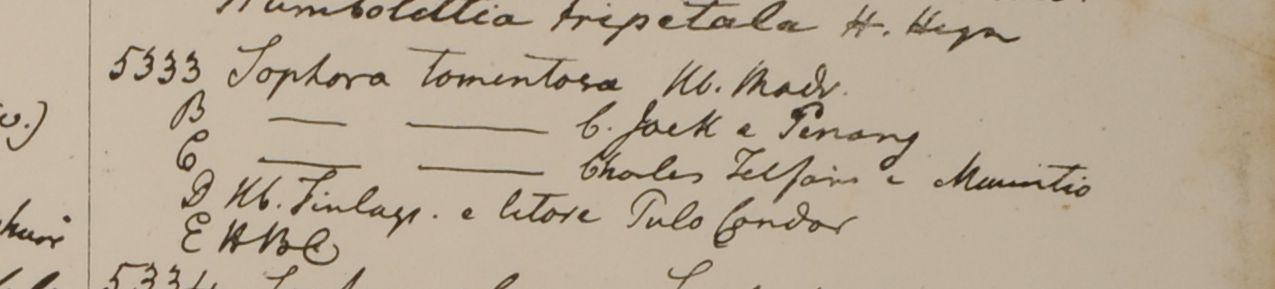 Humboldtia tripetala H. Heyn
5333 Sophora tomentosa Hb. Madr.
B — — C. Jack e Penang
w.)
C — — Charles Telfair e Mauritio
D Hb. Finlays. e litore Pulo Condor
E HBC
5334